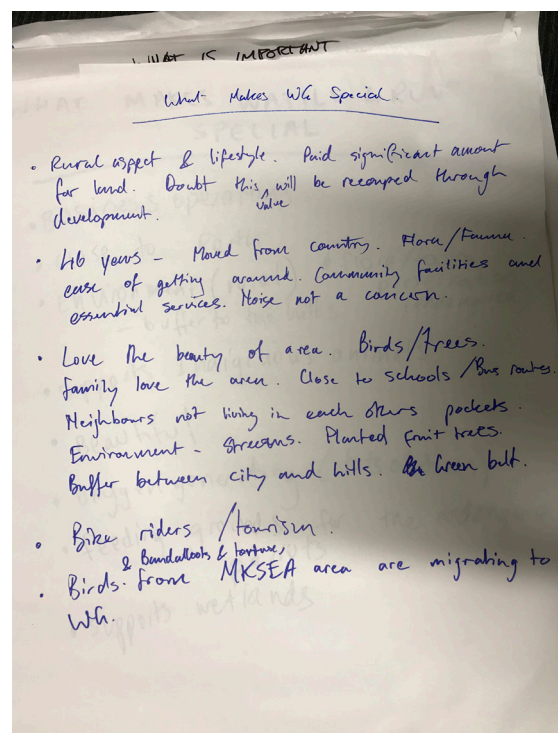 WHAT IS IMPORTANT
What Makes WG Special
• Rural aspect & lifestyle. Paid significant amount
for land. Doubt this value will be recouped through
development.
• 46 years - Moved from country. Flora/Fauna.
ease of getting around. Community facilities and
essential services. Noise not a concern.
• Love the beauty of area. Birds/trees.
Family love the area. Close to schools/Bus routes.
Neighbours not living in each others pockets.
Environment - Streams. Planted fruit trees.
Buffer between city and hills. Green belt.
• Bike riders / tourism.
• Birds & Bandicoots & tortise, from MKSEA area are migrating to
WG.